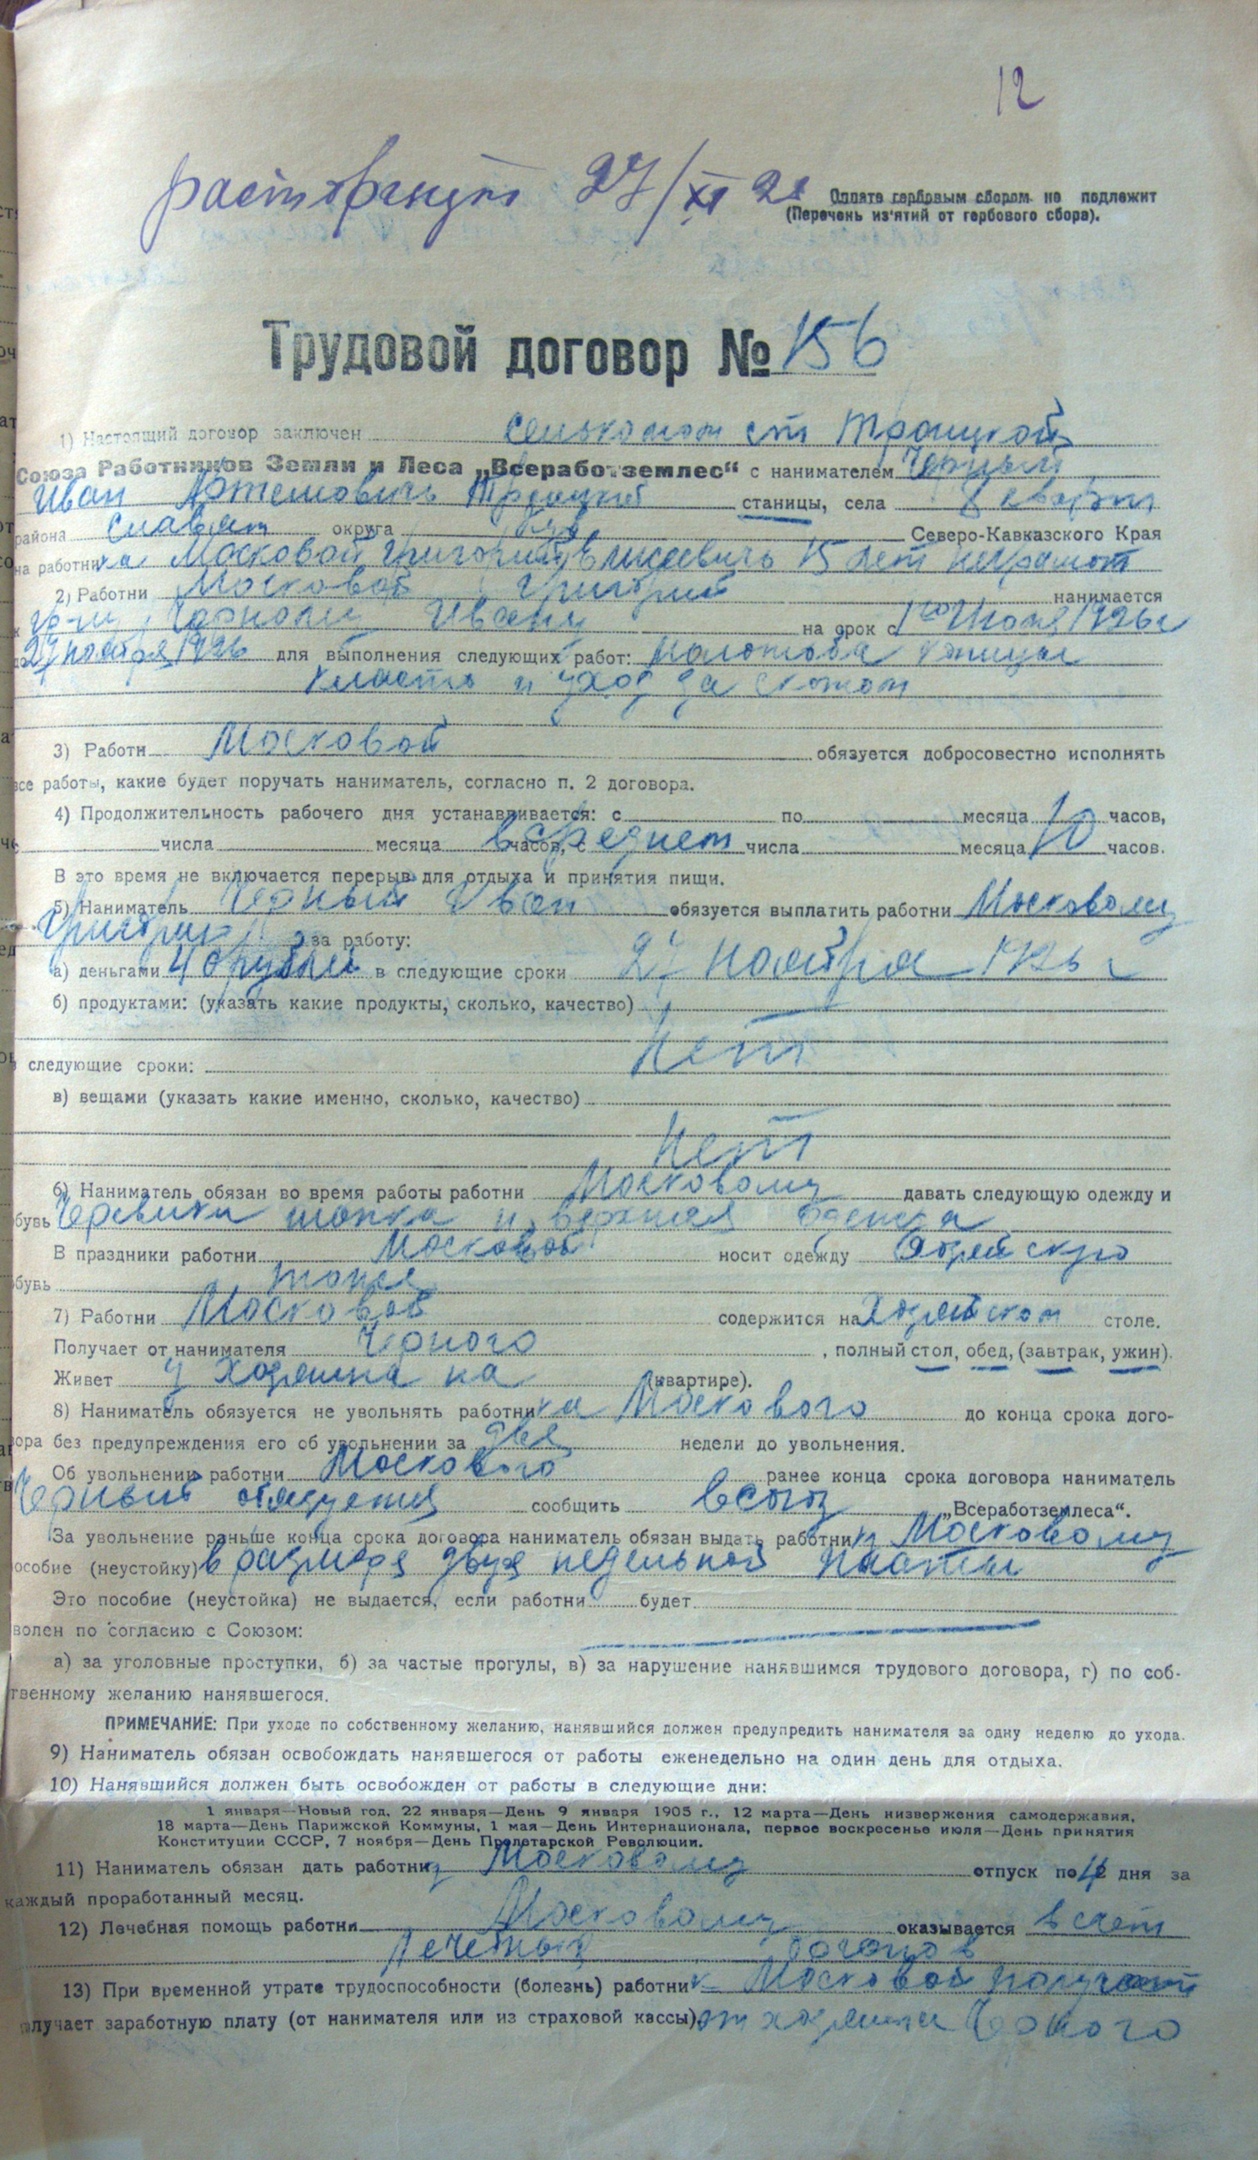 12
расторгнут 27/XI 2
Оплате гербовым сбором не подлежит
(Перечень из'ятий от гербового сбора).
Трудовой договор № 156
1) Настоящий договор заключен селькомом ст Троицкой
Союза Работников Земли и Леса „Всеработземлес“ с нанимателем Черный
Иван Артемович Троицкой станицы, села
района Славян округа Северо-Кавказского Края
на работника Московой Григорий 15 лет неграмот
2) Работни Московой Григорий нанимается
к гр-ну Ивану на срок с 1го Июня 1926 г
до 27 ноября 1926 для выполнения следующих работ:
класть и уход за скотом
3) Работн Московой обязуется добросовестно исполнять
все работы, какие будет поручать наниматель, согласно п. 2 договора.
4) Продолжительность рабочего дня устанавливается: с по месяца часов,
числа месяца часов, с в среднем числа месяца 10 часов.
В это время не включается перерыв для отдыха и принятия пищи.
5) Наниматель Черный Иван обязуется выплатить работни Московому
Григорию за работу:
а) деньгами 40 рублей в следующие сроки 27 ноября 1926 г
б) продуктами: (указать какие продукты, сколько, качество)
Нет
следующие сроки:
в) вещами (указать какие именно, сколько, качество)
Нет
6) Наниматель обязан во время работы работни Московому давать следующую одежду и
обувь Черевики шапка и верхняя одежда
В праздники работни Московой носит одежду Хозяйскую
обувь тоже
7) Работни Московой содержится на Хозяйском столе.
Получает от нанимателя Черного, полный стол, обед, (завтрак, ужин).
Живет у Хозяина на (квартире).
8) Наниматель обязуется не увольнять работника Москового до конца срока дого-
вора без предупреждения его об увольнении за две недели до увольнения.
Об увольнении работни Москового ранее конца срока договора наниматель
Черный обязуется сообщить в союз „Всеработземлеса“.
За увольнение раньше конца срока договора наниматель обязан выдать работнику Московому
пособие (неустойку) в размере двух недельной платы
Это пособие (неустойка) не выдается, если работни будет
уволен по согласию с Союзом:
а) за уголовные проступки, б) за частые прогулы, в) за нарушение нанявшимся трудового договора, г) по соб-
ственному желанию нанявшегося.
ПРИМЕЧАНИЕ: При уходе по собственному желанию, нанявшийся должен предупредить нанимателя за одну неделю до ухода.
9) Наниматель обязан освобождать нанявшегося от работы еженедельно на один день для отдыха.
10) Нанявшийся должен быть освобожден от работы в следующие дни:
1 января—Новый год, 22 января—День 9 января 1905 г., 12 марта—День низвержения самодержавия,
18 марта—День Парижской Коммуны, 1 мая—День Интернационала, первое воскресенье июля—День принятия
Конституции СССР, 7 ноября—День Пролетарской Революции.
11) Наниматель обязан дать работнику Московому отпуск по дня за
каждый проработанный месяц.
12) Лечебная помощь работни Московому оказывается в счет
13) При временной утрате трудоспособности (болезнь) работник Московой получает
получает заработную плату (от нанимателя или из страховой кассы) от хозяина Черного